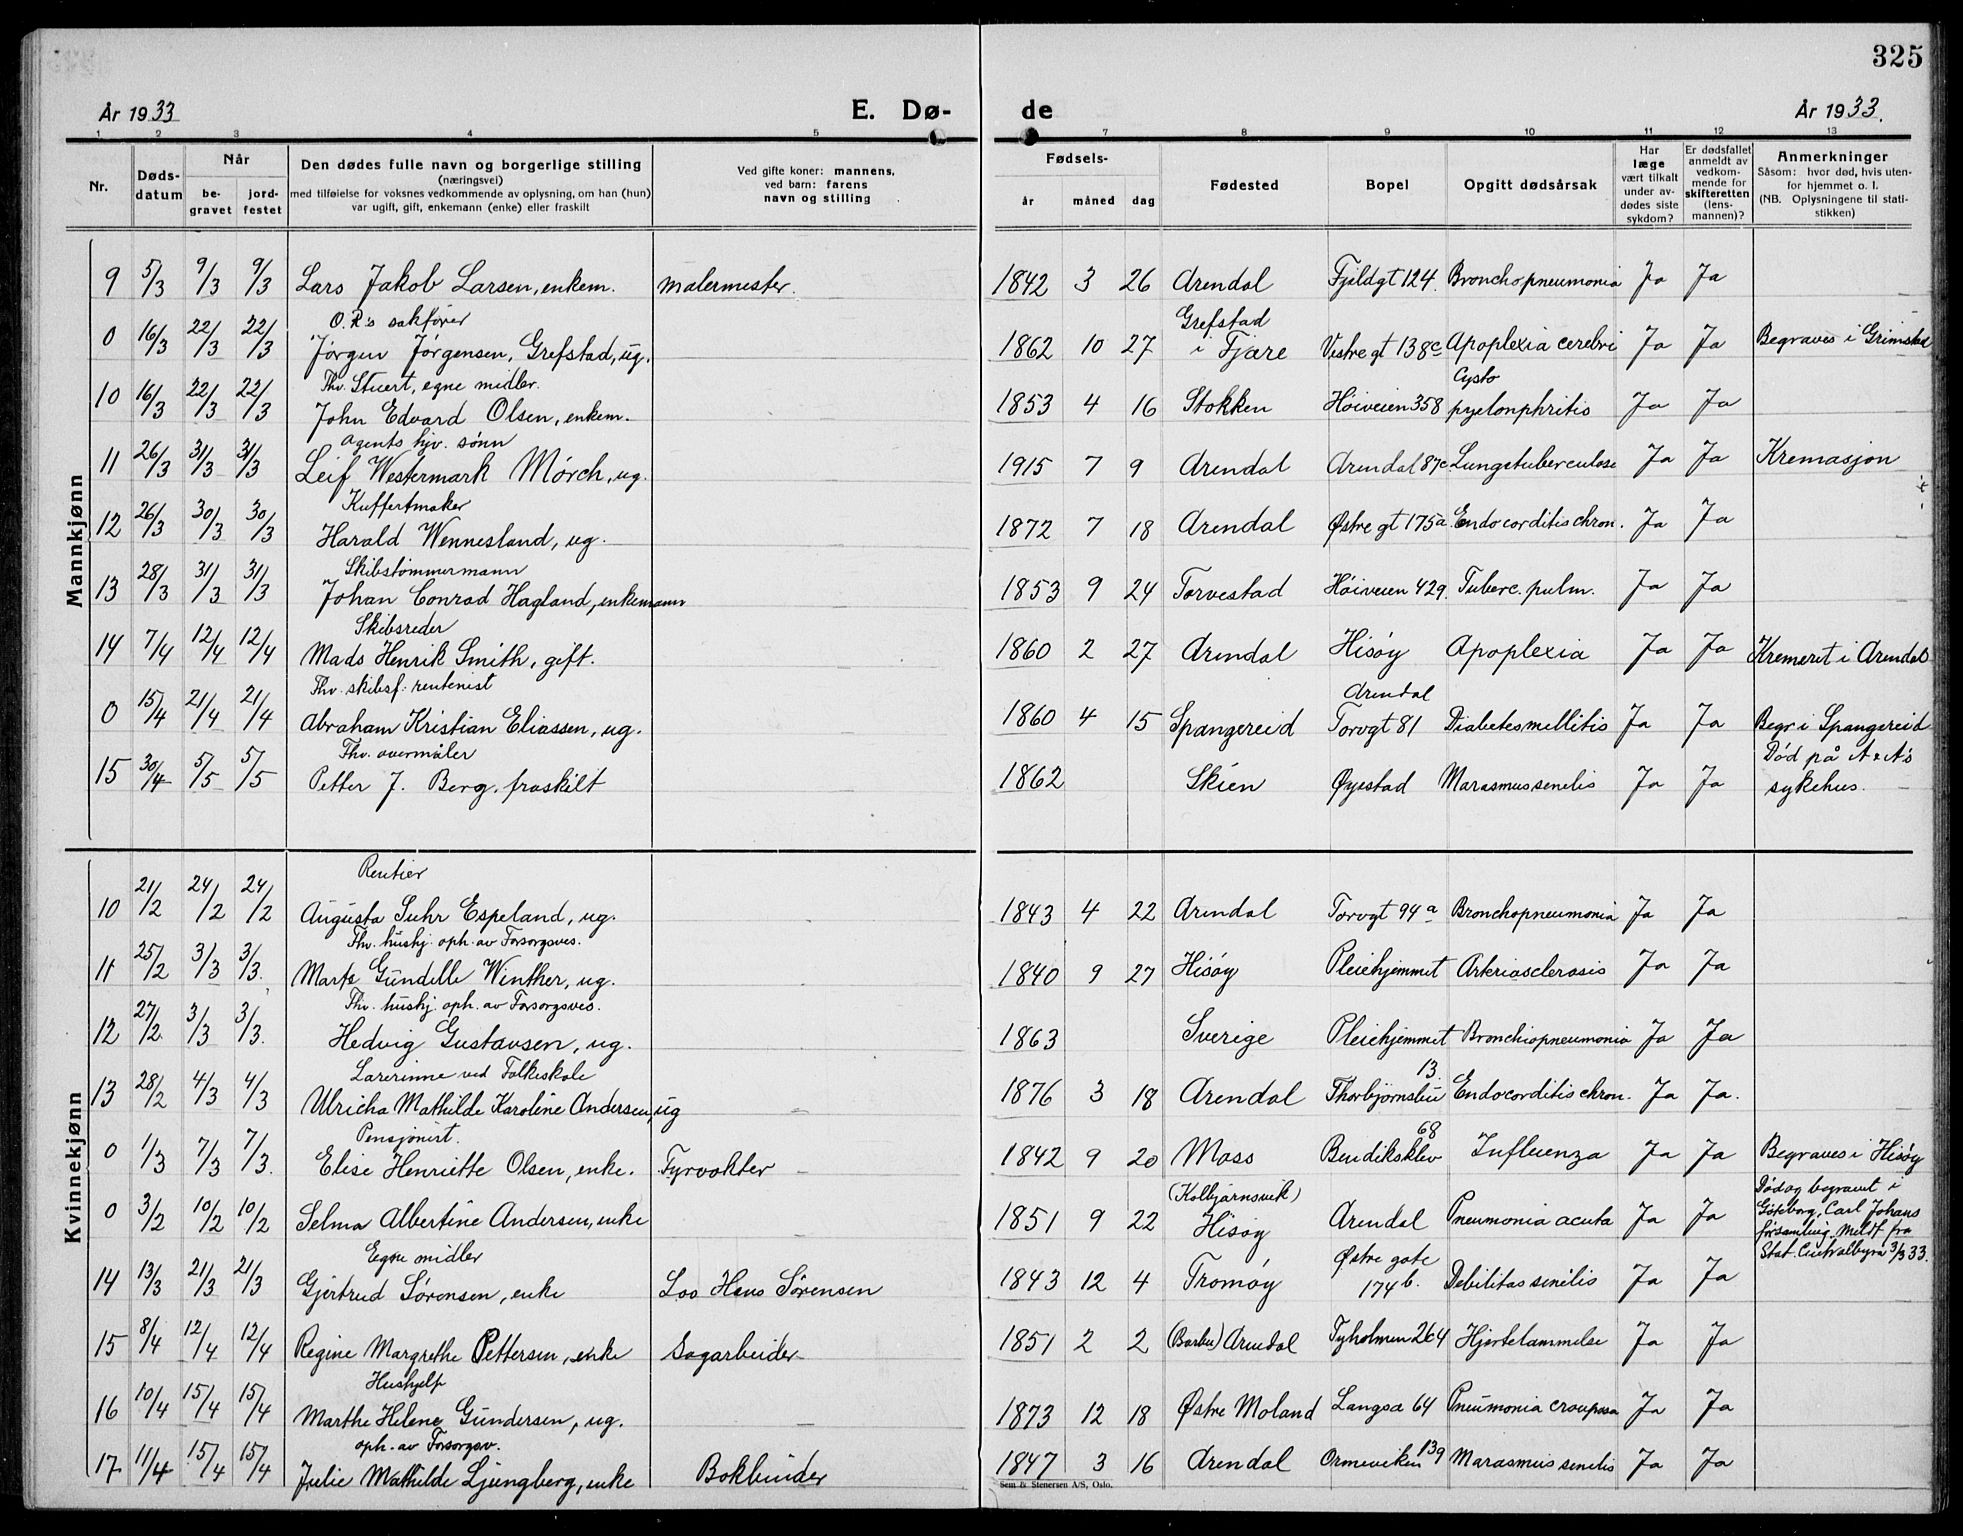 325
År 1933 E. Dø- de År 1933.
1 2 3 4 5 7 8 9 10 11 12 13
Nr. Døds-datum Når be-gravet jord-festet Den dødes fulle navn og borgerlige stilling (næringsvei) med tilføielse for voksnes vedkommende av oplysning, om han (hun) var ugift, gift, enkemann (enke) eller fraskilt Ved gifte koner: mannens, ved barn: farens navn og stilling Fødsels- år måned dag Fødested Bopel Opgitt dødsårsak Har læge vært tilkalt under av-dødes siste sykdom? Er dødsfallet anmeldt av vedkom-mende for skifteretten (lens-mannen)? Anmerkninger Såsom: hvor død, hvis uten-for hjemmet o. l. (NB. Oplysningene til stati-stikken)
Mannkjønn
9 5/3 9/3 9/3 Lars Jakob Larsen, enkem. Malermester. 1842 3 26 Arendal Fjeldgt 124. Bronchopneumonia Ja Ja
O.R's sakfører Grefstad
0 16/3 22/3 22/3 Jørgen Jørgensen, Grefstad, ug. 1862 10 27 i Fjære Vestre gt 138c Apoplexia cerebri Ja Ja Begraves i Grimstad
Thv. Stuert, egne midler. Cysto
10 16/3 22/3 22/3 John Edvard Olsen, enkem. 1853 4 16 Stokken Høiveien 358 pyelonphritis Ja Ja
Agents hjv. sønn
11 26/3 31/3 31/3 Leif Westermark Mørch, ug. 1915 7 9 Arendal Arendal 87c Lungetuberculose Ja Ja Kremasjon
Kuffertmaker
12 26/3 30/3 30/3 Harald Wennesland, ug. 1872 7 18 Arendal Østre gt 175a Endocorditis chron. Ja Ja
Skibstømmermann
13 28/3 31/3 31/3 Johan Conrad Hagland, enkemann 1853 9 24 Torvestad Høiveien 429. Tuberc. pulm. Ja Ja
Skibsreder
14 7/4 12/4 12/4 Mads Henrik Smith, gift. 1860 2 27 Arendal Hisøy Apoplexia Ja Ja Kremeret i Arendal
Thv. skibsf. rentenist Arendal
0 15/4 21/4 21/4 Abraham Kristian Eliassen, ug. 1860 4 15 Spangereid Torvgt 81 Diabetes mellitis Ja Ja Begr i Spangereid
Thv. overmåler Død på A.A's
15 30/4 5/5 5/5 Petter J. Berg, fraskilt 1862 Skien Øyestad Marasmus senilis Ja Ja sykehus.
Kvinnekjønn
Rentier
10 21/2 24/2 24/2 Augusta Suhr Espeland, ug. 1843 4 22 Arendal Torvgt 94a Bronchopneumonia Ja Ja
Thv. hushj. oph. av Forsorgsves.
11 25/2 3/3 3/3. Marta Gundelle Winther, ug. 1840 9 27 Hisøy Pleiehjemmet Arkriosclerosis Ja Ja
Thv. hushj. oph. av Forsorgsves.
12 27/2 3/3 3/3. Hedvig Gustavsen, ug. 1863 Sverige Pleiehjemmet Bronchiopneumonia Ja Ja
Lærerinne ved Folkeskole 13.
13 28/2 4/3 4/3 Ulricha Mathilde Karoline Andersen, ug 1876 3 18 Arendal Thorbjørnsbu Endocorditis chron. Ja Ja.
Pensjonist. 68
0 1/3 7/3 7/3. Elise Henriette Olsen, enke. Fyrvokter 1842 9 20 Moss Bendiksklev Influenza Ja Ja Begraves i Hisøy
(Kolbjørnsvik) Død og begravet i
0 3/2 10/2 10/2 Selma Albertine Andersen, enke 1851 9 22 Hisøy Arendal Pneumonia acuta Ja Ja Göteborg, Carl Johans
församling. Meldt fra
Egne midler Østre gate Stat. Centralbyra 3/3 33.
14 13/3 21/3 21/3 Gjertrud Sørensen, enke Los Hans Sørensen 1843 12 4 Tromøy 174 b. Debilitas senilis Ja Ja
15 8/4 12/4 12/4 Regine Margrethe Pettersen, enke Sagarbeider 1851 2 2 (Barbu) Arendal Tyholmen 264 Hjertelammelse Ja Ja
Hushjelp
16 10/4 15/4 15/4 Marthe Helene Gundersen, ug. 1873 12 18 Østre Moland Langsæ 64 Pneumonia croupøsa Ja Ja
oph. av Forsorgsv.
17 11/4 15/4 15/4 Julie Mathilde Ljungberg, enke Bokbinder 1847 3 16 Arendal Ormeviken 139 Marasmus senilis Ja Ja
Sem & Stenersen A/S, Oslo.